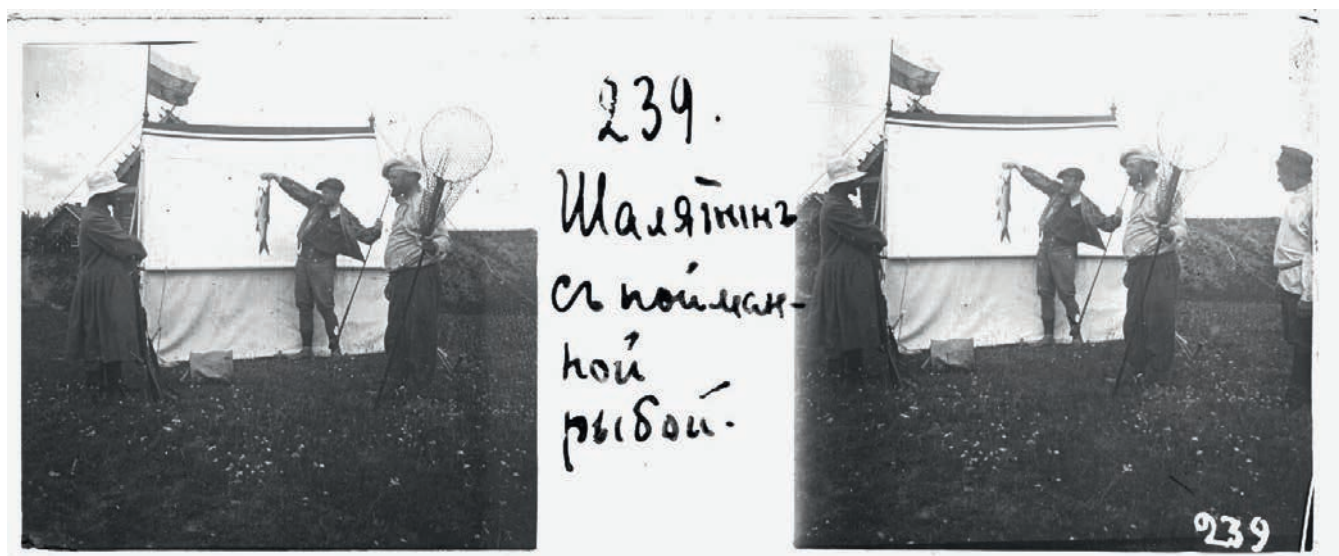 239.
Шаляпинъ
съ пойман-
ной
рыбой.
239